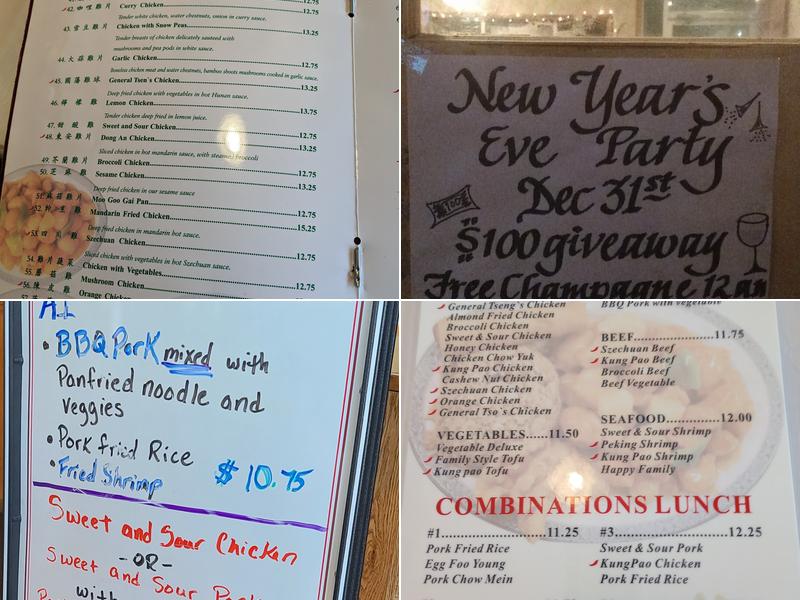 42. 咖 哩 雞 片 Curry Chicken 12.75
Tender white chicken, water chestnuts, onion in curry sauce.
43. 雪 豆 雞 片 Chicken with Snow Peas 13.25
Tender breasts of chicken delicately sauteed with
mushrooms and pea pods in white sauce.
44. 大 蒜 雞 片 Garlic Chicken 12.75
Boneless chicken meat and water chestnuts, bamboo shoots mushrooms cooked in garlic sauce.
45. 國 蕩 雞 球 General Tsen's Chicken 13.25
Deep fried chicken with vegetables in hot Hunan sauce.
46. 檸 檬 雞 Lemon Chicken 13.75
Tender chicken deep fried in lemon juice.
47. 甜 酸 雞 Sweet and Sour Chicken 12.75
48. 東 安 雞 片 Dong An Chicken 13.25
Sliced chicken in hot mandarin sauce, with steamed broccoli
49. 芥 蘭 雞 片 Broccoli Chicken 12.75
50. 芝 麻 雞 Sesame Chicken 13.25
Deep fried chicken in our sesame sauce
51. 蘑 菇 雞 片 Moo Goo Gai Pan 12.75
52. 雞 Mandarin Fried Chicken 15.25
Deep fried chicken in mandarin hot sauce.
53. 四 川 雞 Szechuan Chicken 12.75
Sliced chicken with vegetables in hot Szechuan sauce.
54. 雞 片 蔬 菜 Chicken with Vegetables
55. 蘑 菇 雞 Mushroom Chicken 12.75
56. 陳 皮 雞 Orange Chicken
New Year's
Eve Party
Dec 31st
$100 giveaway
Free Champagne 12 am
A1
• BBQ Pork mixed with
Panfried noodle and
veggies
• Pork fried Rice
• Fried Shrimp $ 10.75
Sweet and Sour Chicken
-OR-
Sweet and Sour Pork
with
General Tseng's Chicken
Almond Fried Chicken
Broccoli Chicken
Sweet & Sour Chicken
Honey Chicken
Chicken Chow Yuk
Kung Pao Chicken
Cashew Nut Chicken
Szechuan Chicken
Orange Chicken
General Tso's Chicken
VEGETABLES......11.50
Vegetable Deluxe
Family Style Tofu
Kung pao Tofu
BBQ Pork with vegetable
BEEF......................11.75
Szechuan Beef
Kung Pao Beef
Broccoli Beef
Beef Vegetable
SEAFOOD...............12.00
Sweet & Sour Shrimp
Peking Shrimp
Kung Pao Shrimp
Happy Family
COMBINATIONS LUNCH
#1............................11.25
Pork Fried Rice
Egg Foo Young
Pork Chow Mein
#3............................12.25
Sweet & Sour Pork
KungPao Chicken
Pork Fried Rice